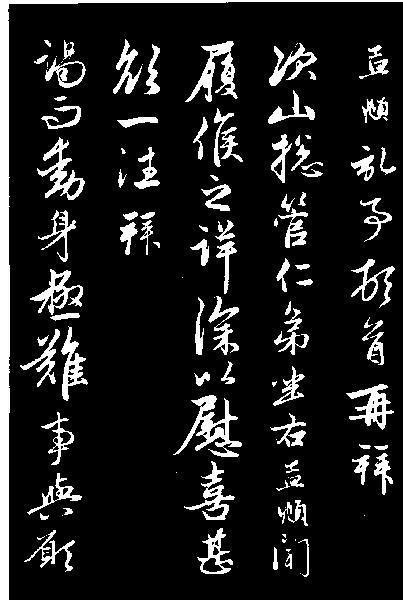 孟頫記事頓首再拜
次山總管仁弟坐右孟頫聞
履候之詳深以慰喜甚
欲一往拜
謁而動身極難事與願